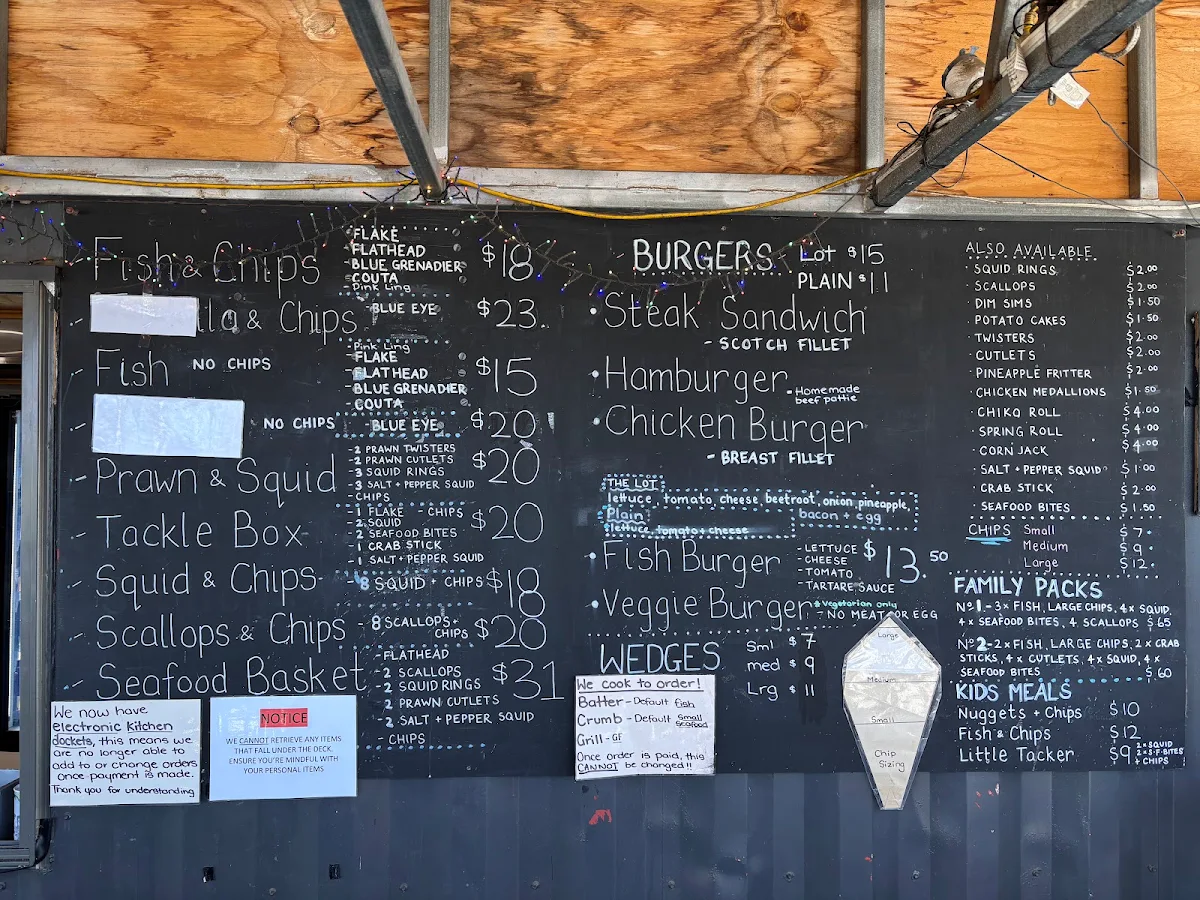 Fish & Chips
- FLAKE
- FLATHEAD
- BLUE GRENADIER
- COUTA
- Pink Ling
$18
& Chips
- BLUE EYE
$23
- Fish NO CHIPS
- Pink Ling
- FLAKE
- FLATHEAD
- BLUE GRENADIER
- COUTA
$15
NO CHIPS
- BLUE EYE
$20
- Prawn & Squid
- 2 PRAWN TWISTERS
- 2 PRAWN CUTLETS
- 3 SQUID RINGS
- 3 SALT + PEPPER SQUID
- CHIPS
$20
- Tackle Box
- 1 FLAKE - CHIPS
- 2 SQUID
- 2 SEAFOOD BITES
- 1 CRAB STICK
- 1 SALT + PEPPER SQUID
$20
- Squid & Chips
- 8 SQUID + CHIPS
$18
- Scallops & Chips
- 8 SCALLOPS +
CHIPS
$20
- Seafood Basket
- FLATHEAD
- 2 SCALLOPS
- 2 SQUID RINGS
- 2 PRAWN CUTLETS
- 2 SALT + PEPPER SQUID
- CHIPS
$31
We now have
electronic Kitchen
dockets, this means we
are no longer able to
add to or change orders
once payment is made.
Thank you for understanding
NOTICE
WE CANNOT RETRIEVE ANY ITEMS
THAT FALL UNDER THE DECK.
ENSURE YOU'RE MINDFUL WITH
YOUR PERSONAL ITEMS
BURGERS
Lot $15
PLAIN $11
• Steak Sandwich
- SCOTCH FILLET
• Hamburger
- Homemade
beef pattie
• Chicken Burger
- BREAST FILLET
THE LOT
lettuce, tomato cheese beetroot, onion, pineapple,
bacon + egg
Plain
lettuce tomato + cheese
• Fish Burger
- LETTUCE
- CHEESE
- TOMATO
- TARTARE SAUCE
$13.50
• Veggie Burger
* Vegetarian only
- NO MEAT OR EGG
WEDGES
Sml $7
med $9
Lrg $11
We cook to order!
Batter - Default fish
Crumb - Default Small seafood
Grill - GF
Once order is paid, this
CANNOT be changed!!
Large
Medium
Small
Chip
Sizing
ALSO AVAILABLE
· SQUID RINGS $2.00
· SCALLOPS $2.00
· DIM SIMS $1.50
· POTATO CAKES $1.50
· TWISTERS $2.00
· CUTLETS $2.00
· PINEAPPLE FRITTER $2.00
· CHICKEN MEDALLIONS $1.50
· CHIKO ROLL $4.00
· SPRING ROLL $4.00
· CORN JACK $4.00
· SALT + PEPPER SQUID $1.00
· CRAB STICK $2.00
· SEAFOOD BITES $1.50
CHIPS Small $7.
Medium $9.
Large $12.
FAMILY PACKS
Nº1 - 3x FISH, LARGE CHIPS, 4x SQUID,
4x SEAFOOD BITES, 4 SCALLOPS $65
Nº2 - 2x FISH, LARGE CHIPS, 2x CRAB
STICKS, 4x CUTLETS, 4x SQUID, 4x
SEAFOOD BITES $60
KIDS MEALS
Nuggets + Chips $10
Fish & Chips $12
Little Tacker $9 2x SQUID
2x S.F. BITES
+ CHIPS